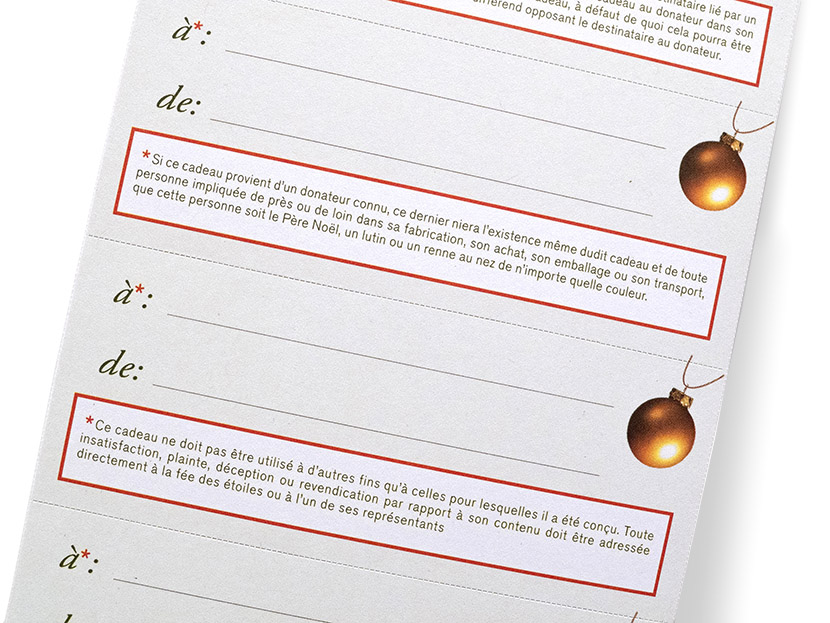 cadeau au donateur dans son
cadeau, à défaut de quoi cela pourra être
différend opposant le destinataire au donateur.
à*:
de:
*Si ce cadeau provient d'un donateur connu, ce dernier niera l'existence même dudit cadeau et de toute
personne impliquée de près ou de loin dans sa fabrication, son achat, son emballage ou son transport,
que cette personne soit le Père Noël, un lutin ou un renne au nez de n'importe quelle couleur.
à*:
de:
*Ce cadeau ne doit pas être utilisé à d'autres fins qu'à celles pour lesquelles il a été conçu. Toute
insatisfaction, plainte, déception ou revendication par rapport à son contenu doit être adressée
directement à la fée des étoiles ou à l'un de ses représentants
à*: